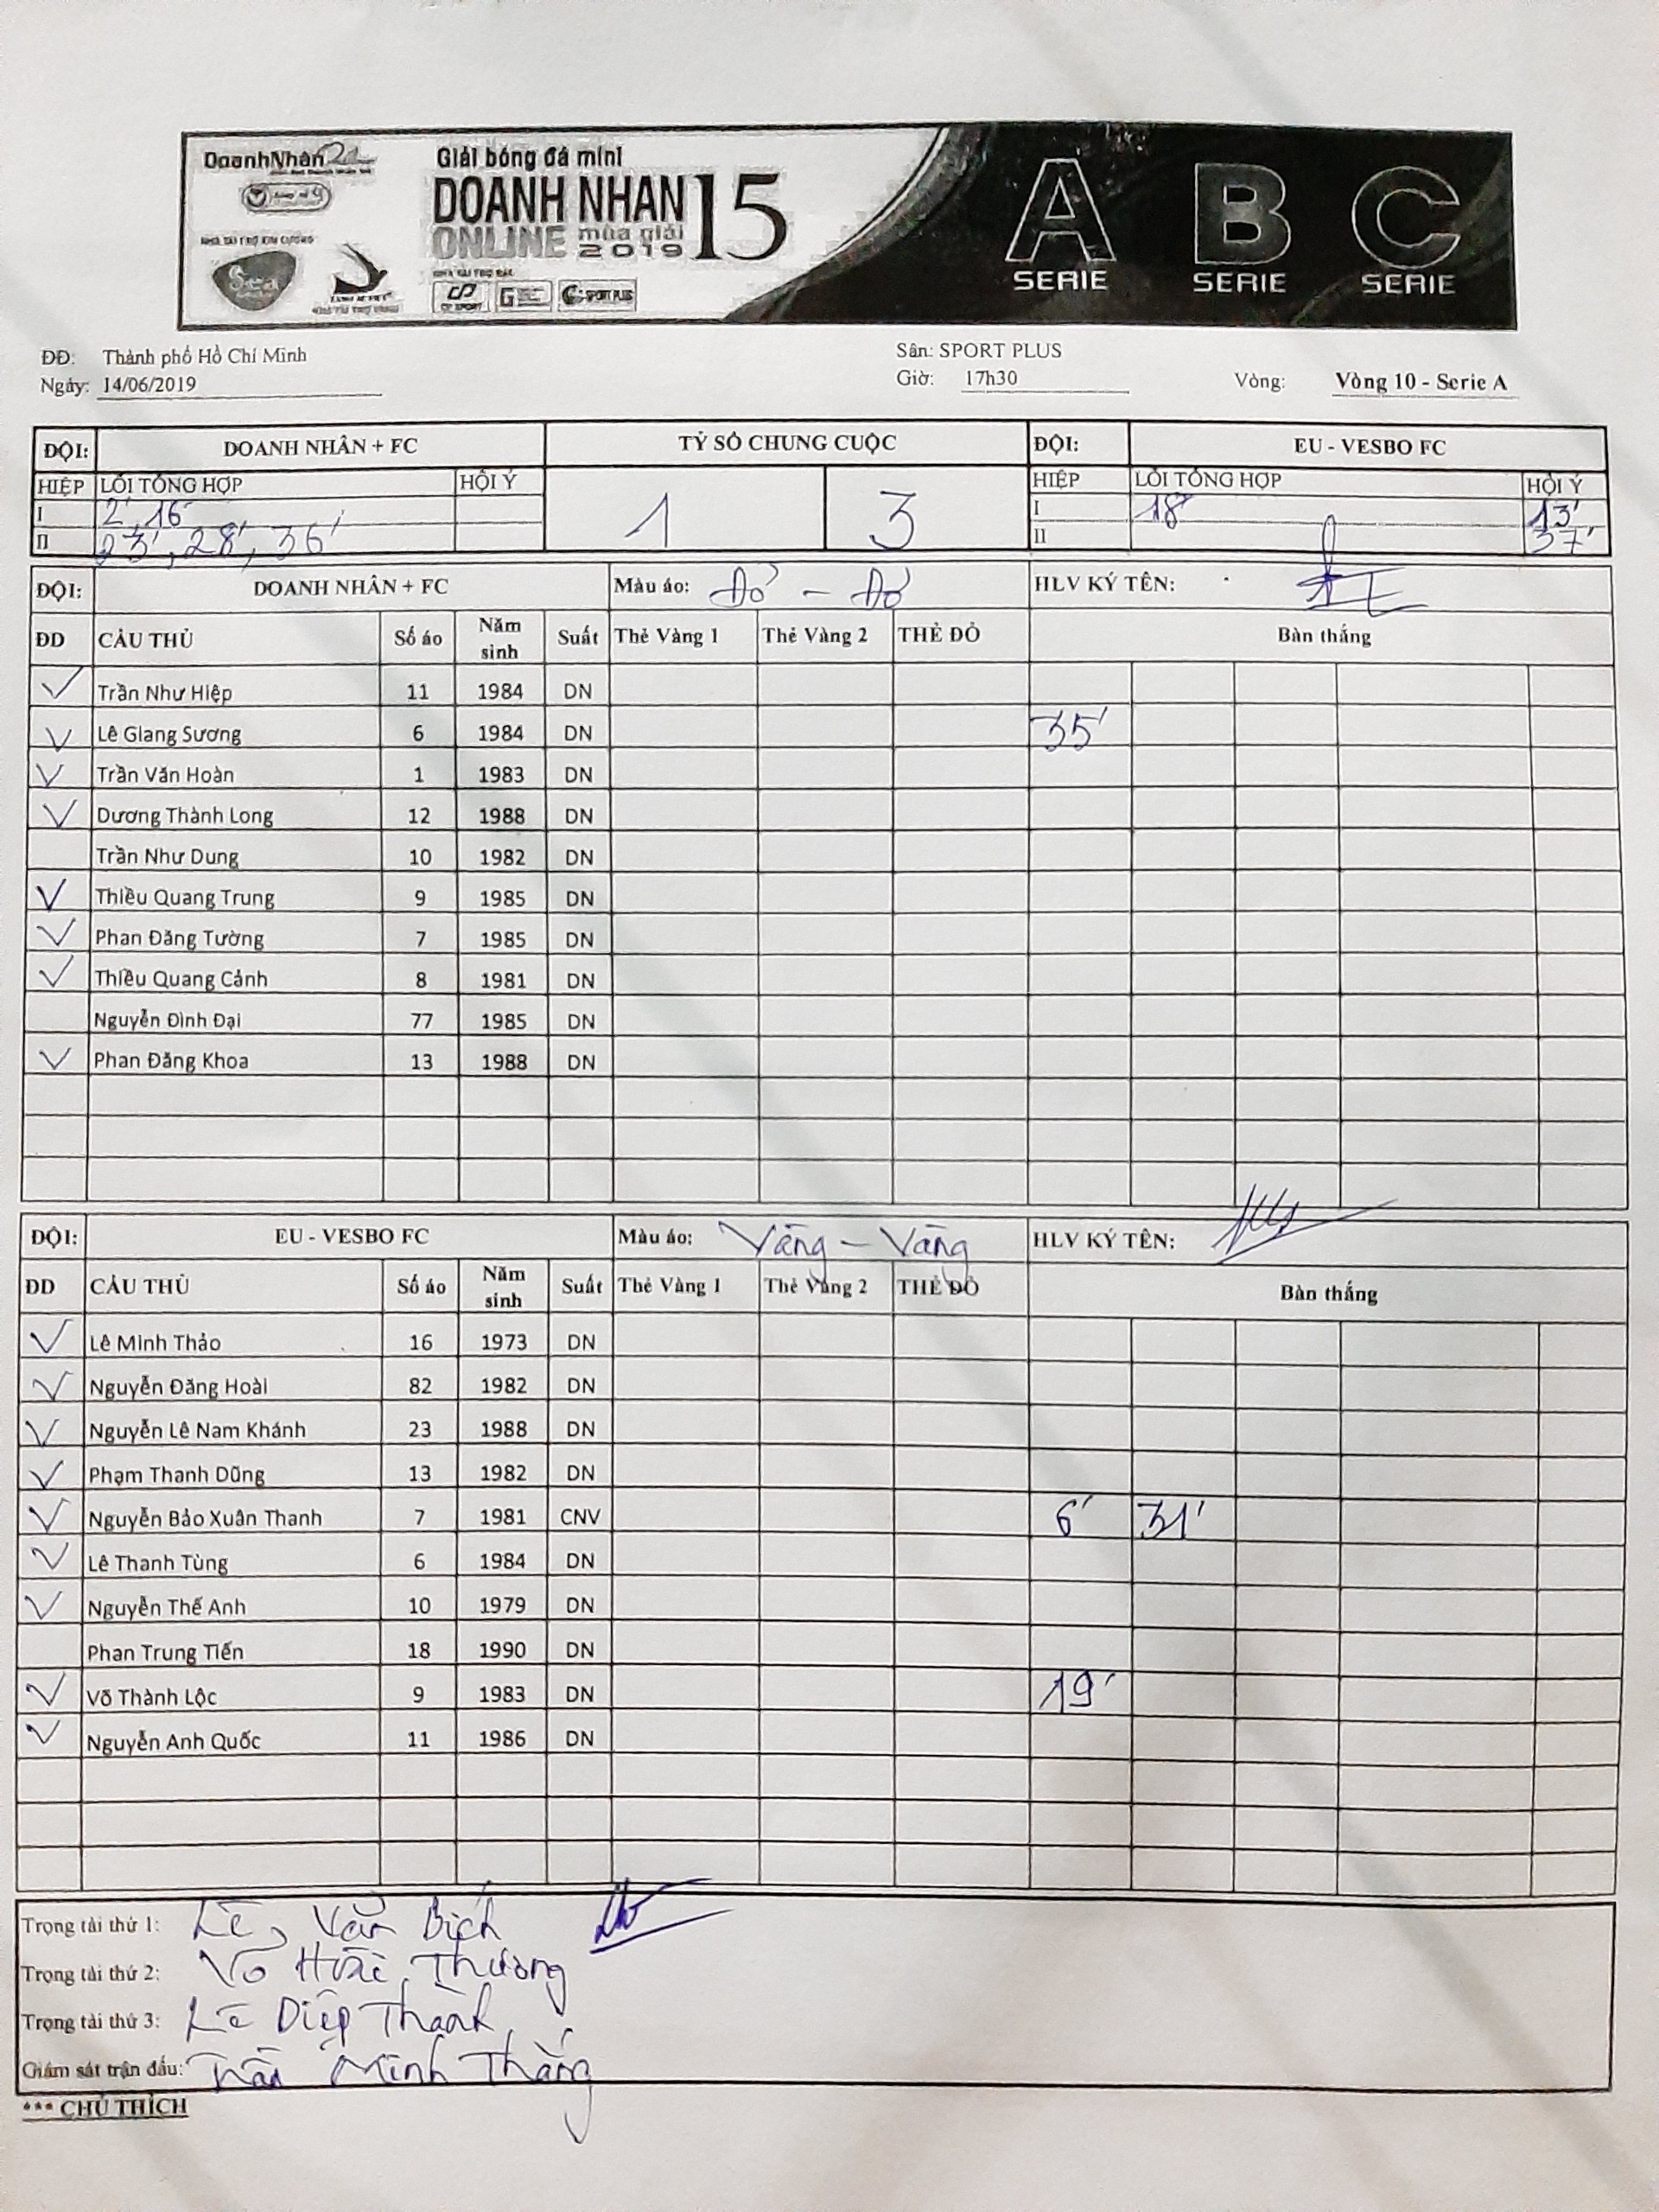 DoanhNhân
Giải bóng đá mini
DOANH NHAN 15
ONLINE mùa giải 2019
NHÀ TÀI TRỢ KIM CƯƠNG
NHÀ TÀI TRỢ BẠC
CP SPORT
SPORT PLUS
A SERIE
B SERIE
C SERIE
ĐĐ: Thành phố Hồ Chí Minh Sân: SPORT PLUS
Ngày: 14/06/2019 Giờ: 17h30 Vòng: Vòng 10 - Serie A
ĐỘI: DOANH NHÂN + FC TỶ SỐ CHUNG CUỘC ĐỘI: EU - VESBO FC
HIỆP LỖI TỔNG HỢP HỘI Ý 1 3 HIỆP LỖI TỔNG HỢP HỘI Ý
I 2', 16' I 18' 13'
II 23', 28', 36' II 37'
ĐỘI: DOANH NHÂN + FC Màu áo: Đỏ - Đỏ HLV KÝ TÊN:
ĐD CẦU THỦ Số áo Năm sinh Suất Thẻ Vàng 1 Thẻ Vàng 2 THẺ ĐỎ Bàn thắng
V Trần Như Hiệp 11 1984 DN
V Lê Giang Sương 6 1984 DN 35'
V Trần Văn Hoàn 1 1983 DN
V Dương Thành Long 12 1988 DN
Trần Như Dung 10 1982 DN
V Thiều Quang Trung 9 1985 DN
V Phan Đăng Tường 7 1985 DN
V Thiều Quang Cảnh 8 1981 DN
Nguyễn Đình Đại 77 1985 DN
V Phan Đăng Khoa 13 1988 DN
ĐỘI: EU - VESBO FC Màu áo: Vàng - Vàng HLV KÝ TÊN:
ĐD CẦU THỦ Số áo Năm sinh Suất Thẻ Vàng 1 Thẻ Vàng 2 THẺ ĐỎ Bàn thắng
V Lê Minh Thảo 16 1973 DN
V Nguyễn Đăng Hoài 82 1982 DN
V Nguyễn Lê Nam Khánh 23 1988 DN
V Phạm Thanh Dũng 13 1982 DN
V Nguyễn Bảo Xuân Thanh 7 1981 CNV 6' 31'
V Lê Thanh Tùng 6 1984 DN
V Nguyễn Thế Anh 10 1979 DN
Phan Trung Tiến 18 1990 DN
V Võ Thành Lộc 9 1983 DN 19'
V Nguyễn Anh Quốc 11 1986 DN
Trọng tài thứ 1: Lê Văn Bích
Trọng tài thứ 2: Võ Hoài Thương
Trọng tài thứ 3: Lê Diệp Thành
Giám sát trận đấu: Trần Minh Thắng
*** CHÚ THÍCH